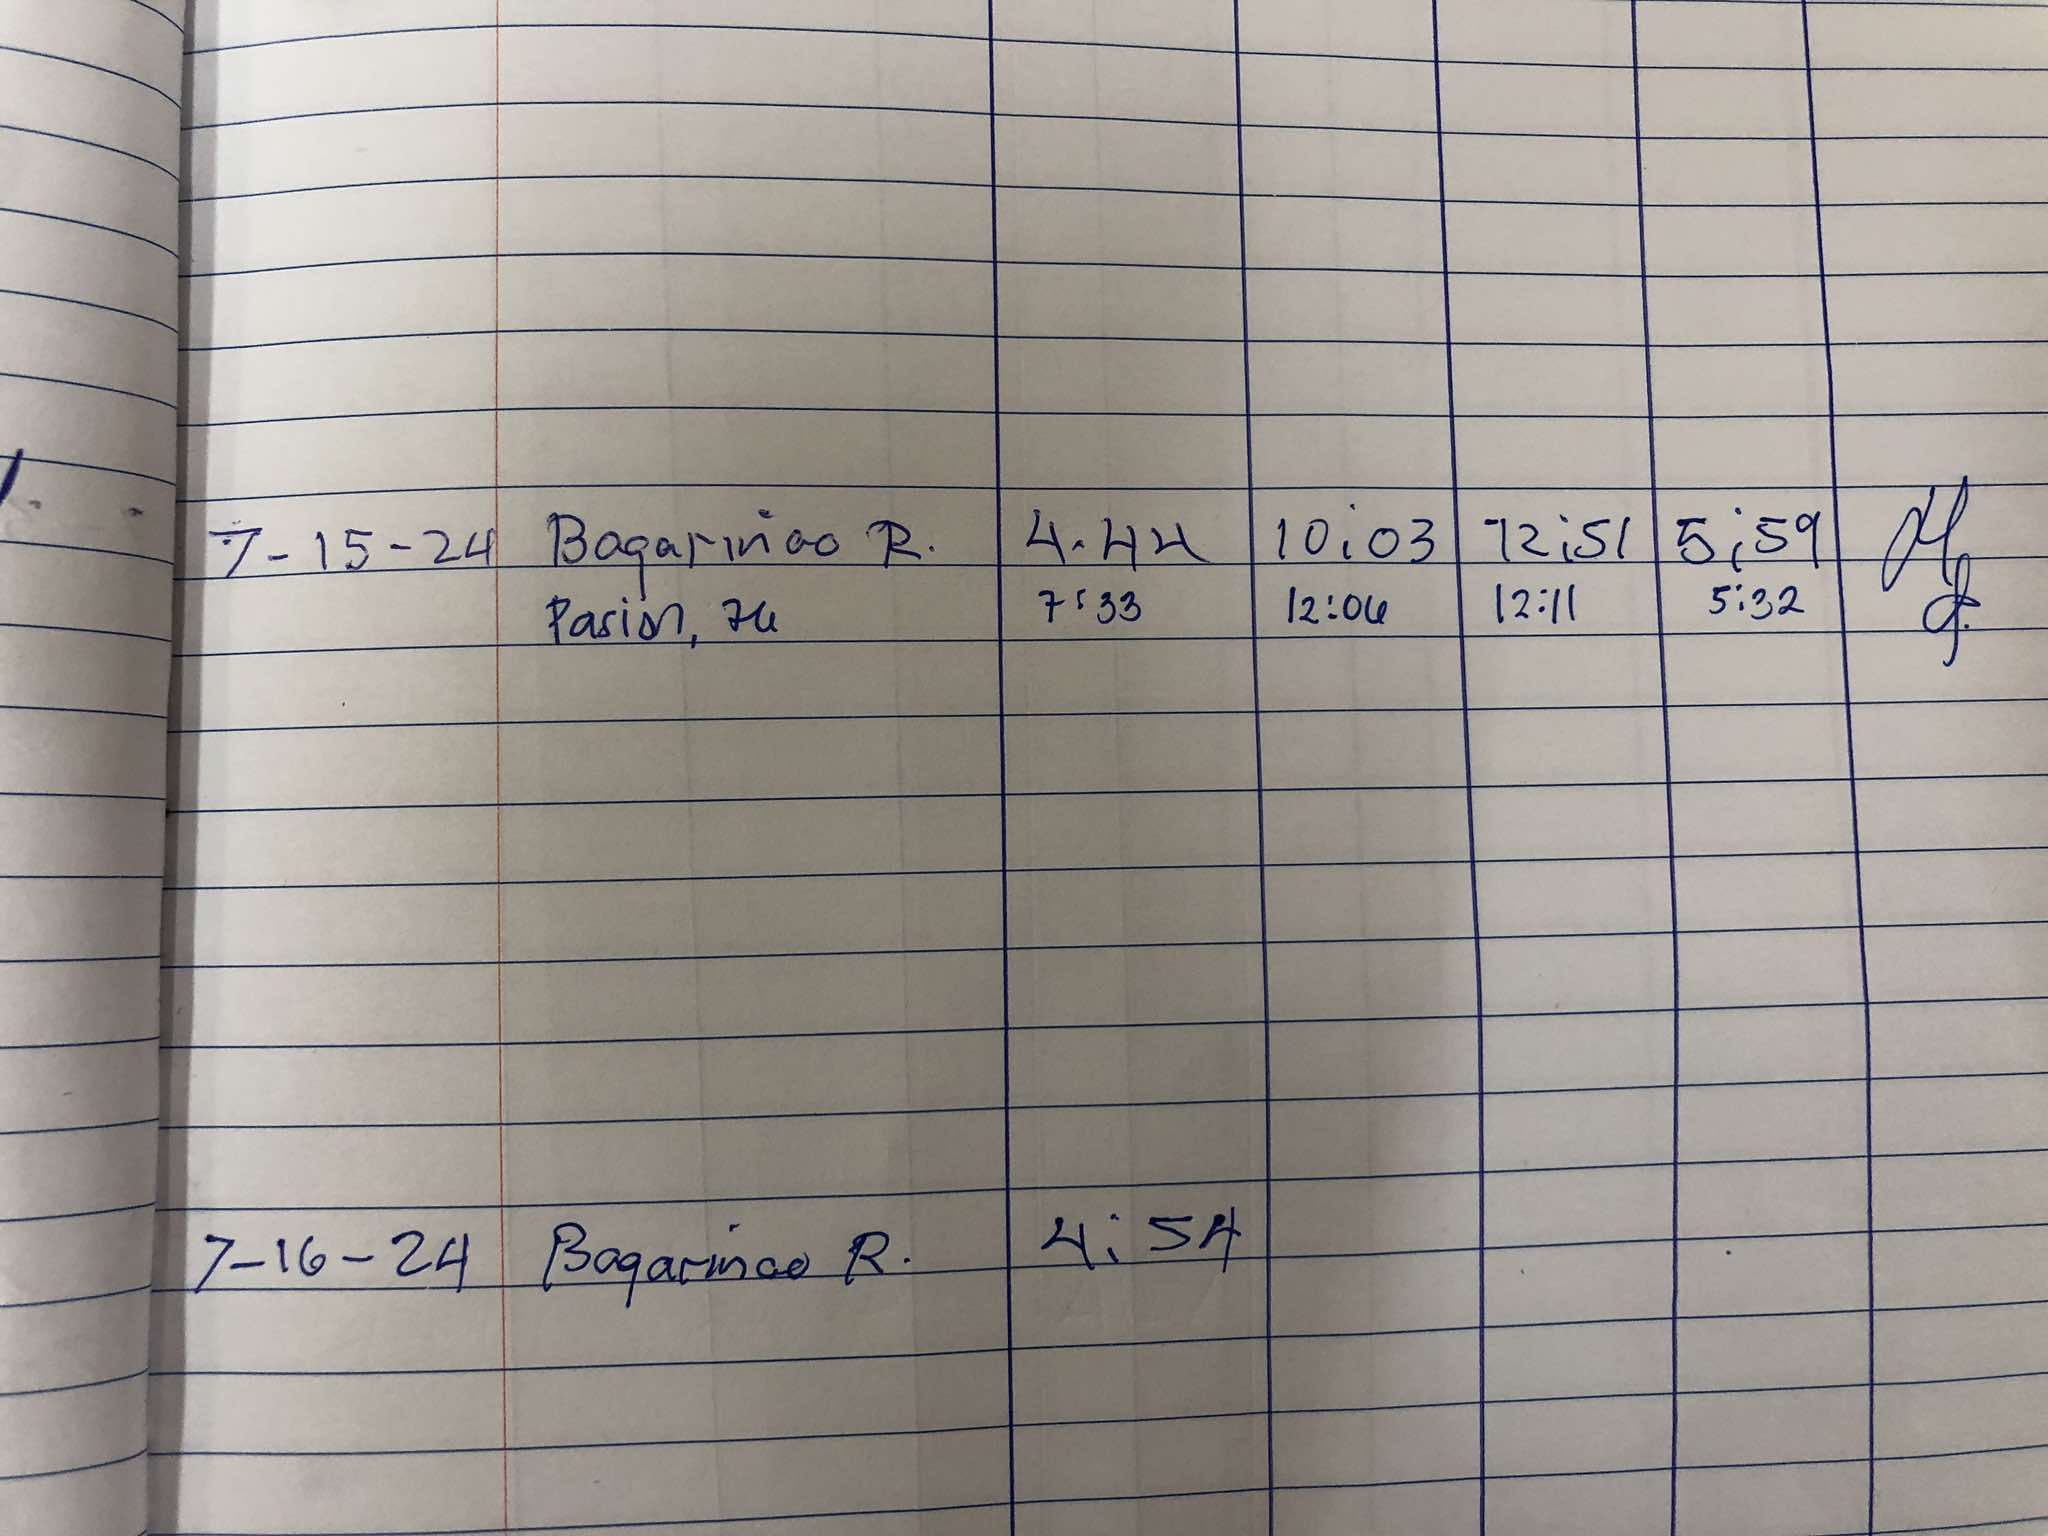 7-15-24 Bagarinao R. 4.44 10:03 12:51 5:59
Pasion, 7:33 12:06 12:11 5:32
7-16-24 Bagarinao R. 4:54